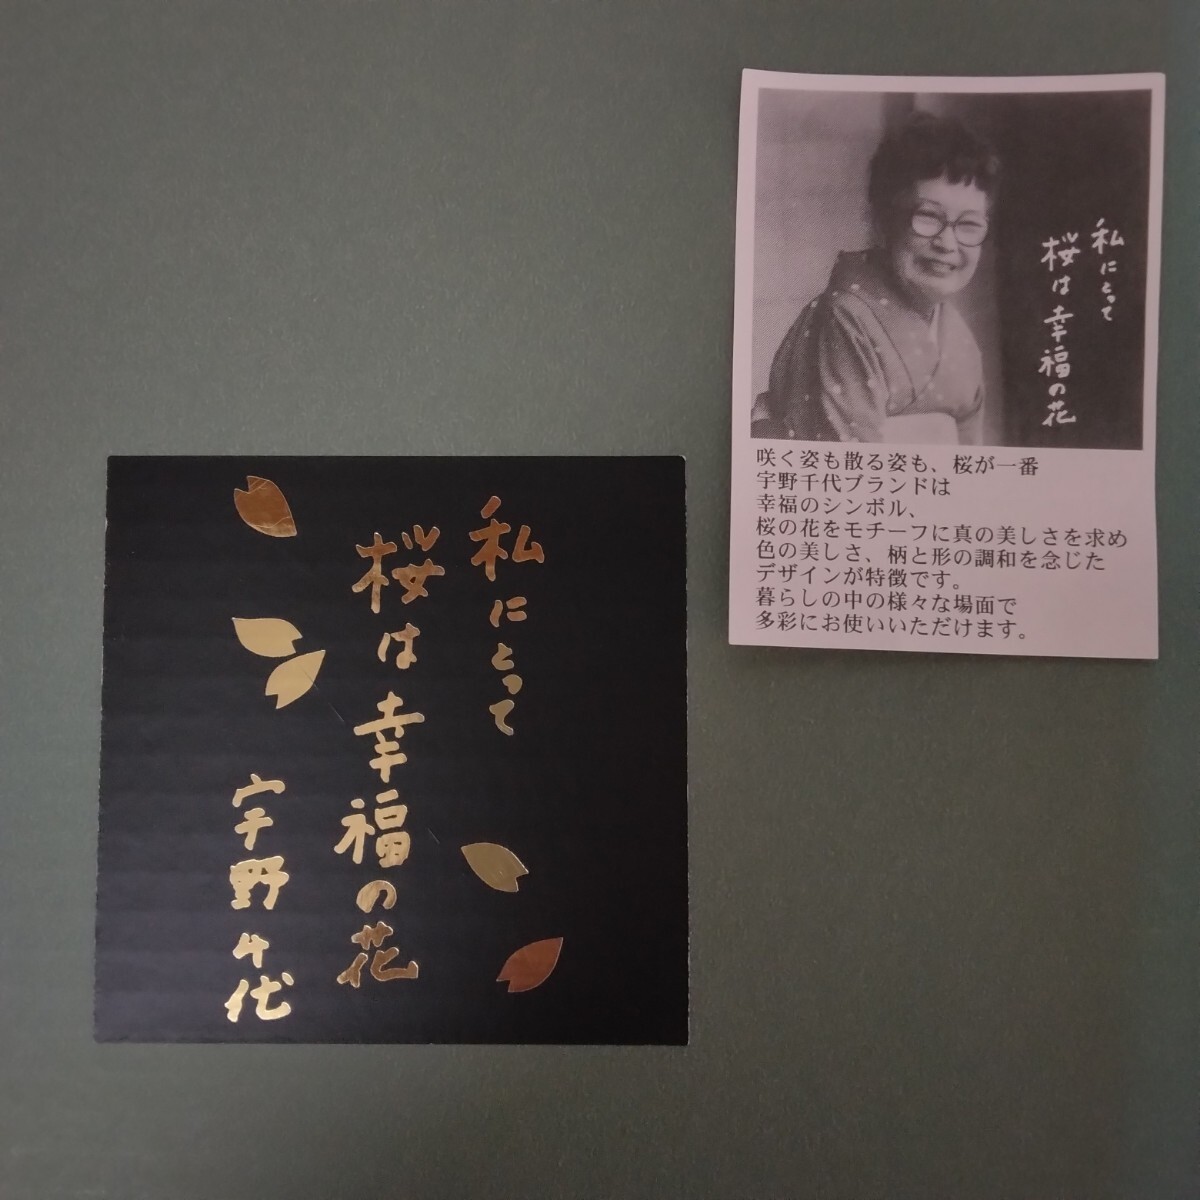 私にとって
桜は幸福の花
宇野千代
私にとって
桜は幸福の花
咲く姿も散る姿も、桜が一番
宇野千代ブランドは
幸福のシンボル、
桜の花をモチーフに真の美しさを求め
色の美しさ、柄と形の調和を念じた
デザインが特徴です。
暮らしの中の様々な場面で
多彩にお使いいただけます。